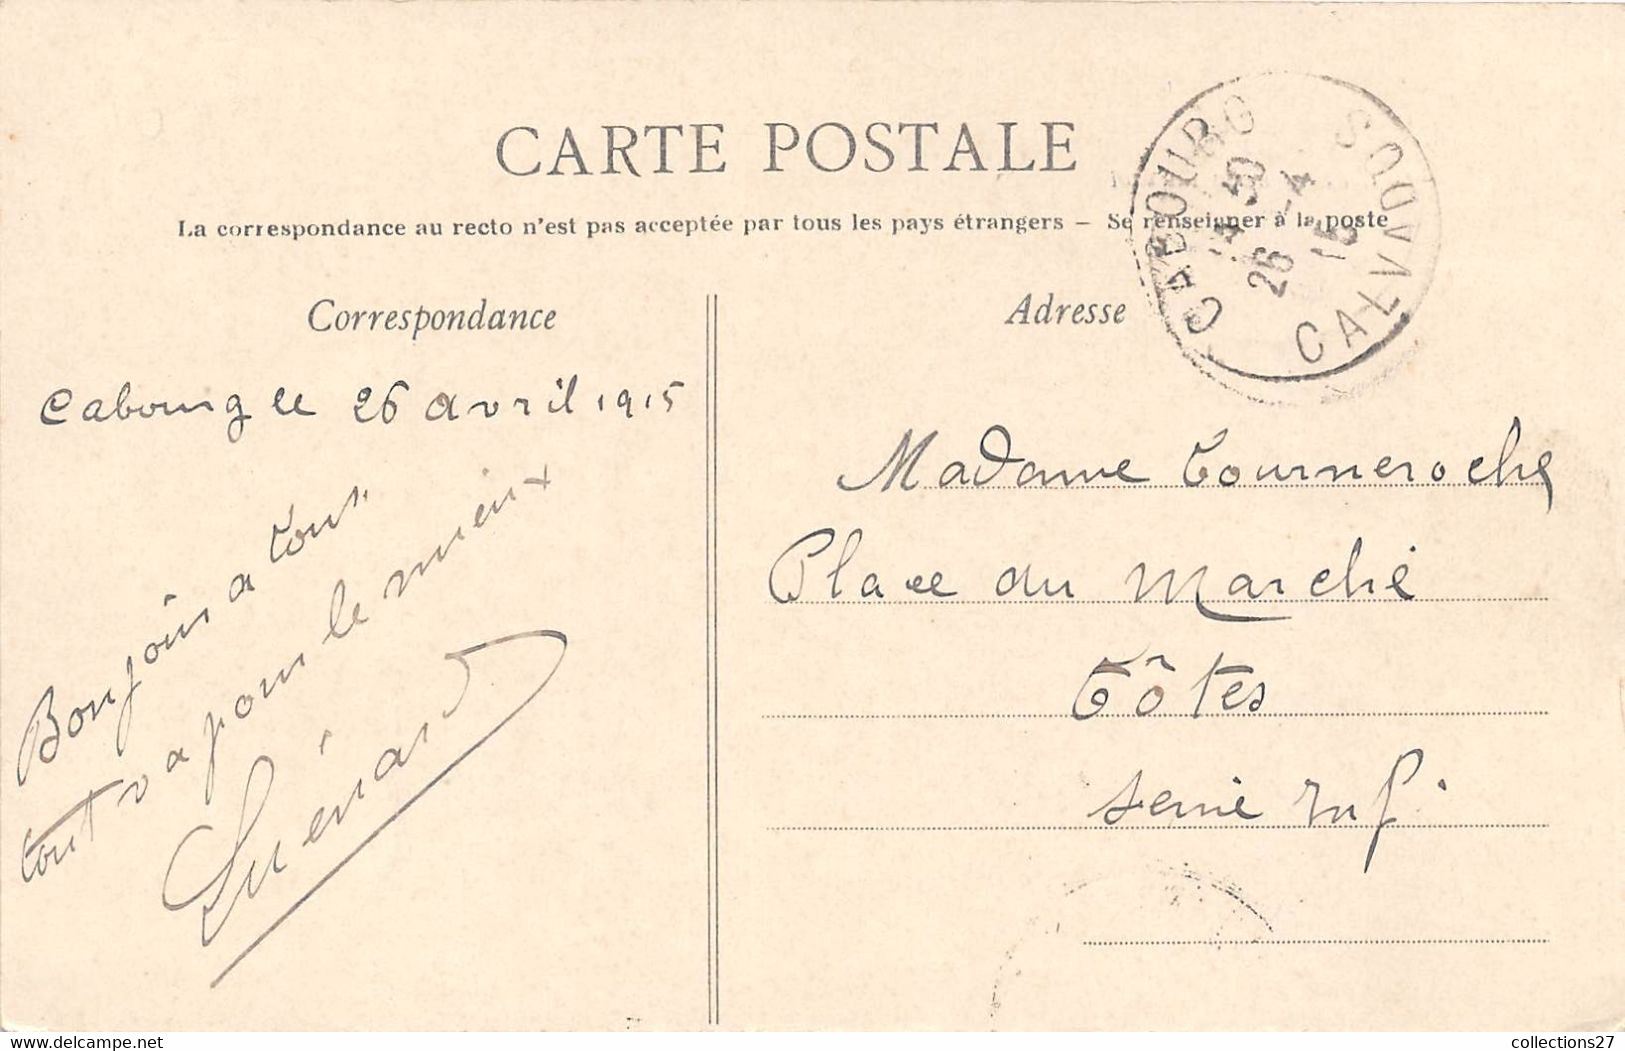 CARTE POSTALE
La correspondance au recto n'est pas acceptée par tous les pays étrangers — Se renseigner à la poste
CABOURG
50
26 -4
15
CALVADOS
Correspondance
Cabourg le 26 avril 1915
Bonjour a tous
tout va pour le mieux
Guénard
Adresse
Madame Tourneroche
Place du Marché
Tôtes
Seine Inf.
collections27